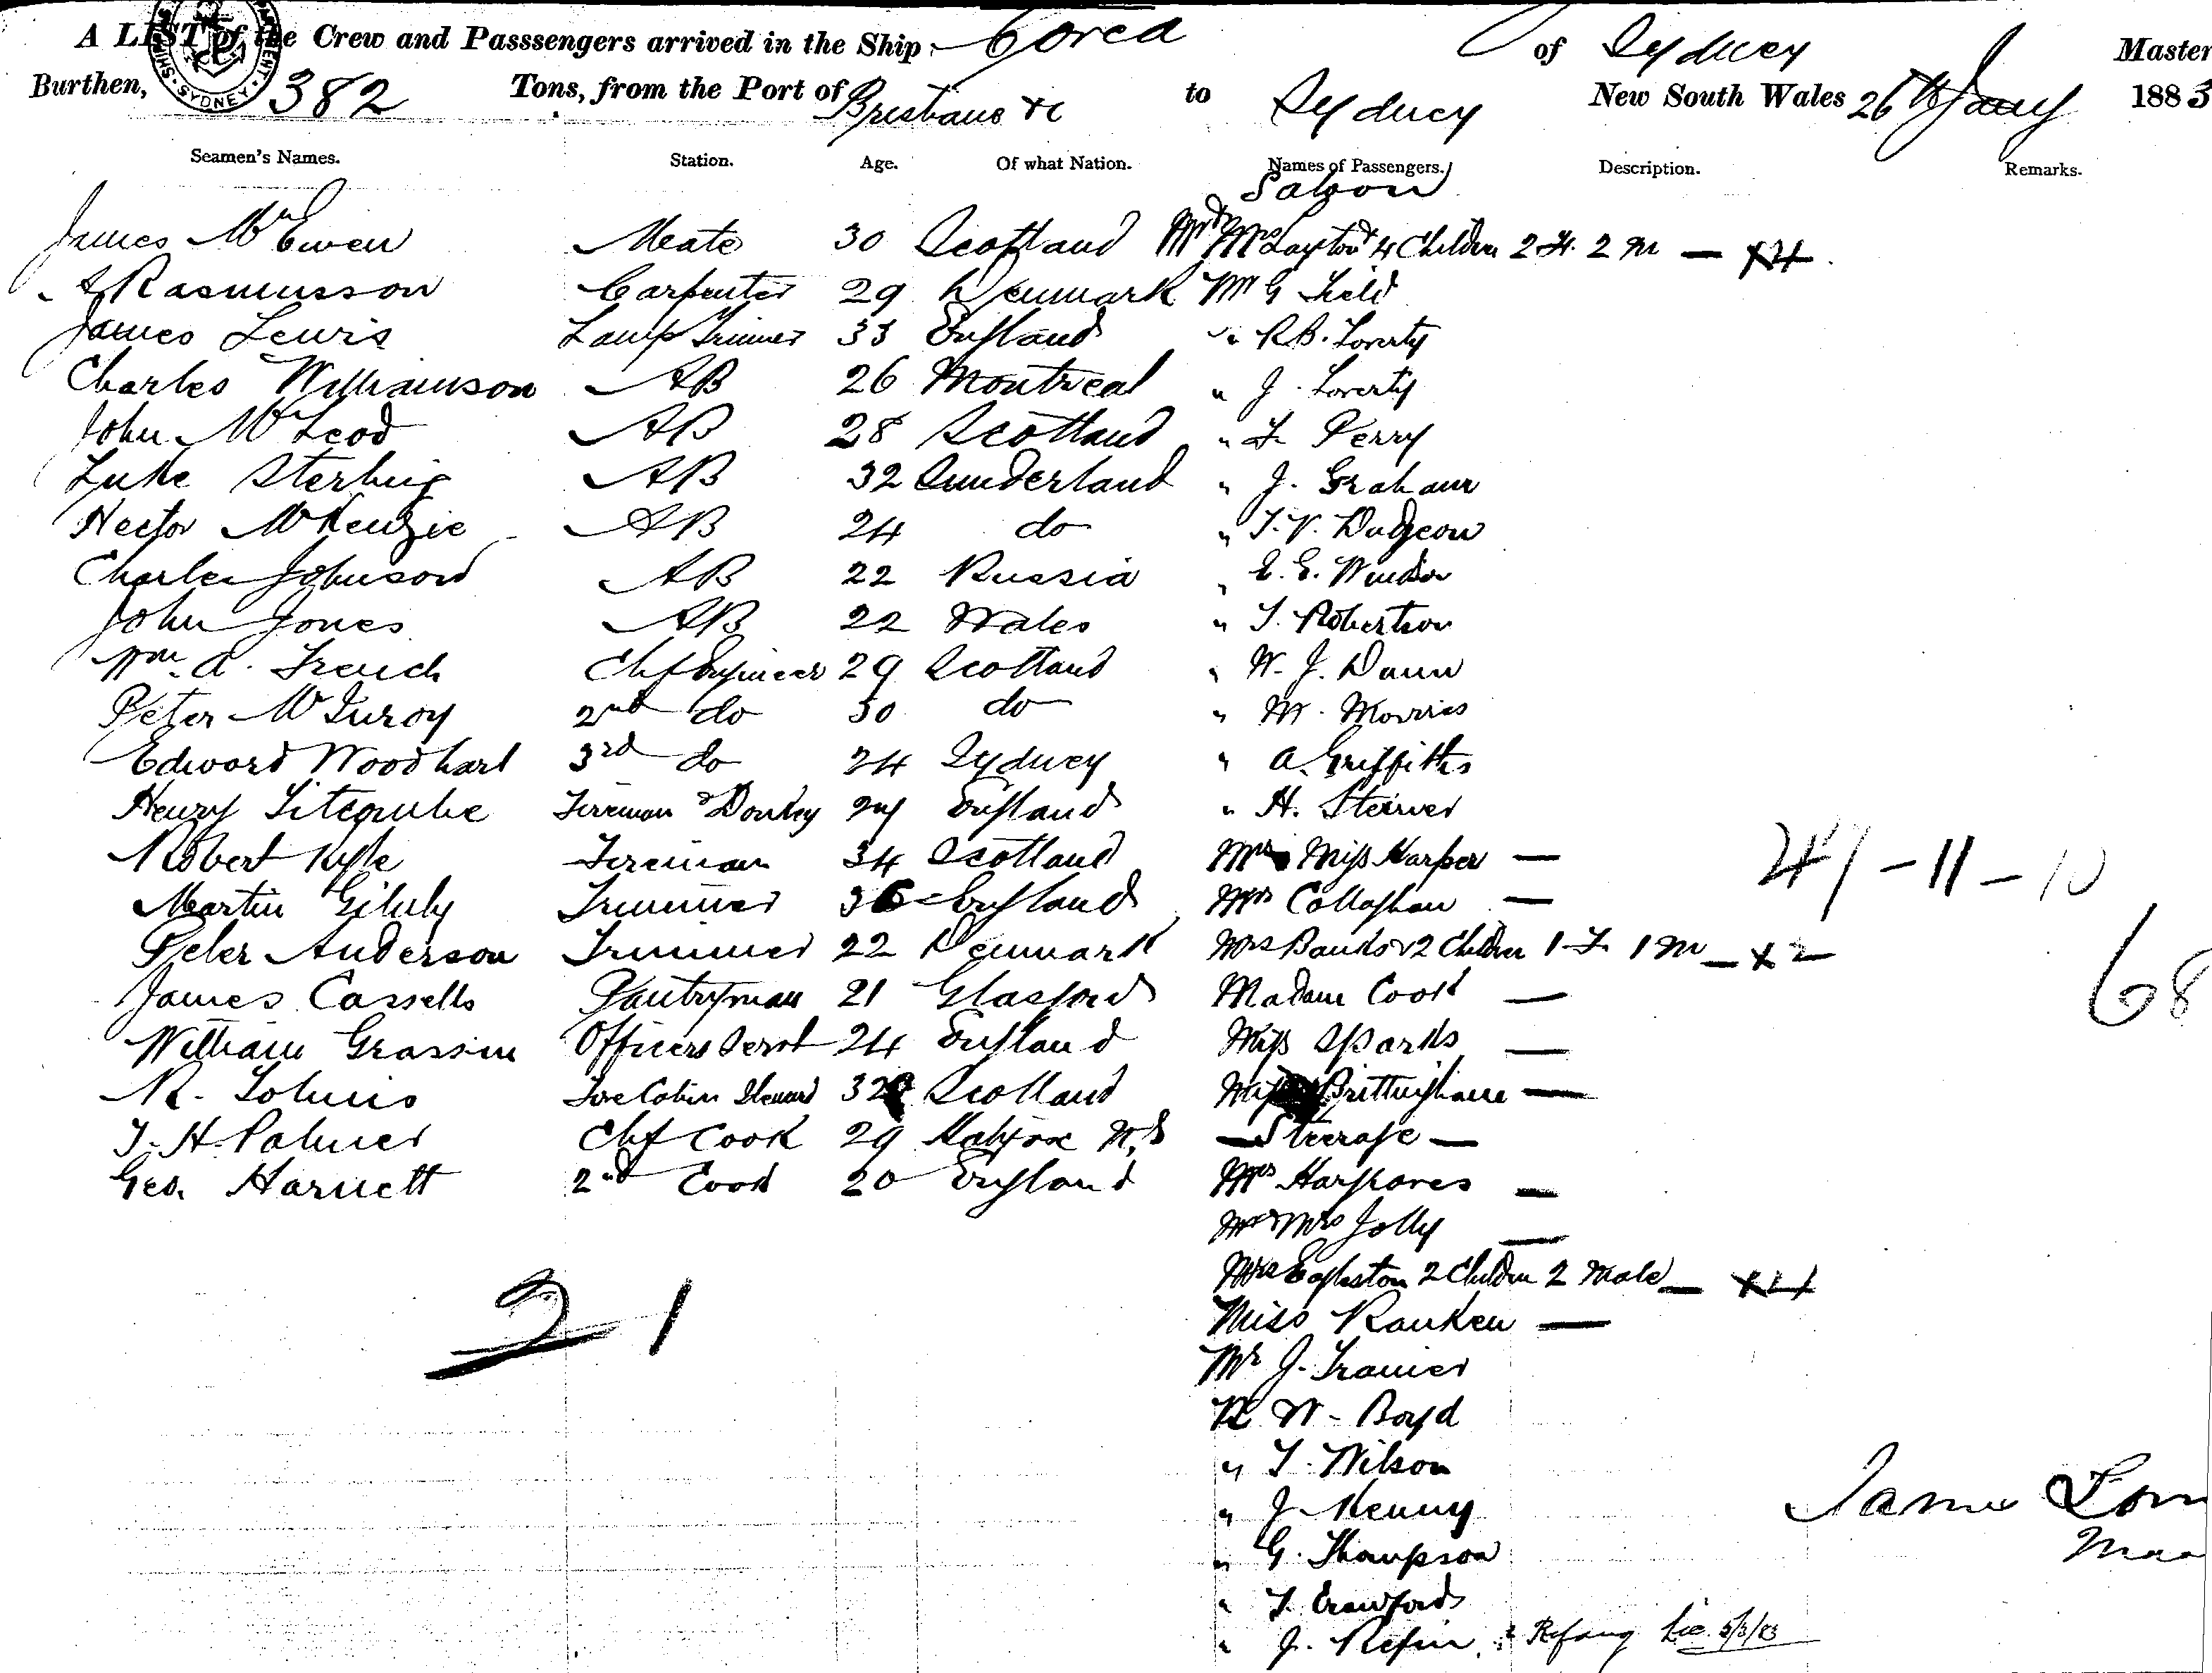 A LIST of the Crew and Passsengers arrived in the Ship Corea of Sydney Master
Burthen, 382 Tons, from the Port of Brisbane &c to Sydney New South Wales 26th Jany 1883
Seamen's Names. Station. Age. Of what Nation. Names of Passengers. Description. Remarks.
Saloon
James McEwen Mate 30 Scotland Mr & Mrs Layton & 4 Children 2 F. 2 M — x4
Rasmusson Carpenter 29 Denmark Mr G Field
James Lewis Lamp Trimmer 33 England " R B.
Charles Williamson AB 26 Montreal " J.
John McLeod AB 28 Scotland " F Perry
Luke Sterling AB 32 Sunderland " J. Graham
Hector McKenzie AB 24 do " T. V. Dudgeon
Charles Johnson AB 22 Russia " E. E. Windsor
John Jones AB 22 Wales " T. Robertson
Wm. A. French Chf Engineer 29 Scotland " W. J. Dunn
Peter McIlroy 2nd do 30 do " M. Morris
Edward Woodhart 3rd do 24 Sydney " A. Griffiths
Henry Fireman & Donkey England " H.
Robert Kyle Fireman 34 Scotland Mrs Miss Harper —
Martin Giluly Trimmer 36 England Mrs Callaghan —
Peter Anderson Trimmer 22 Denmark Mrs Banks & 2 Children 1 F. 1 M — x2
James Cassells Pantryman 21 Glasgow Madam Cook —
William Grassim Officers Servt 24 England Miss Sparks —
R. Fore Cabin Steward 32 Scotland Miss Brittingham —
T. H. Palmer Chf Cook 29 Halifax N.S — Steerage —
Geo. Harnett 2nd Cook 20 England Mrs Hargraves —
Mr & Mrs Jolly —
Mrs Eggleston 2 Children 2 Male —
21
Miss Ranken —
Mr J.
W. Boyd
" T. Wilson
" J. Kenny
" G. Thompson
" T. Crawford
" J.
47 - 11 - 10
68
James
5/3/83